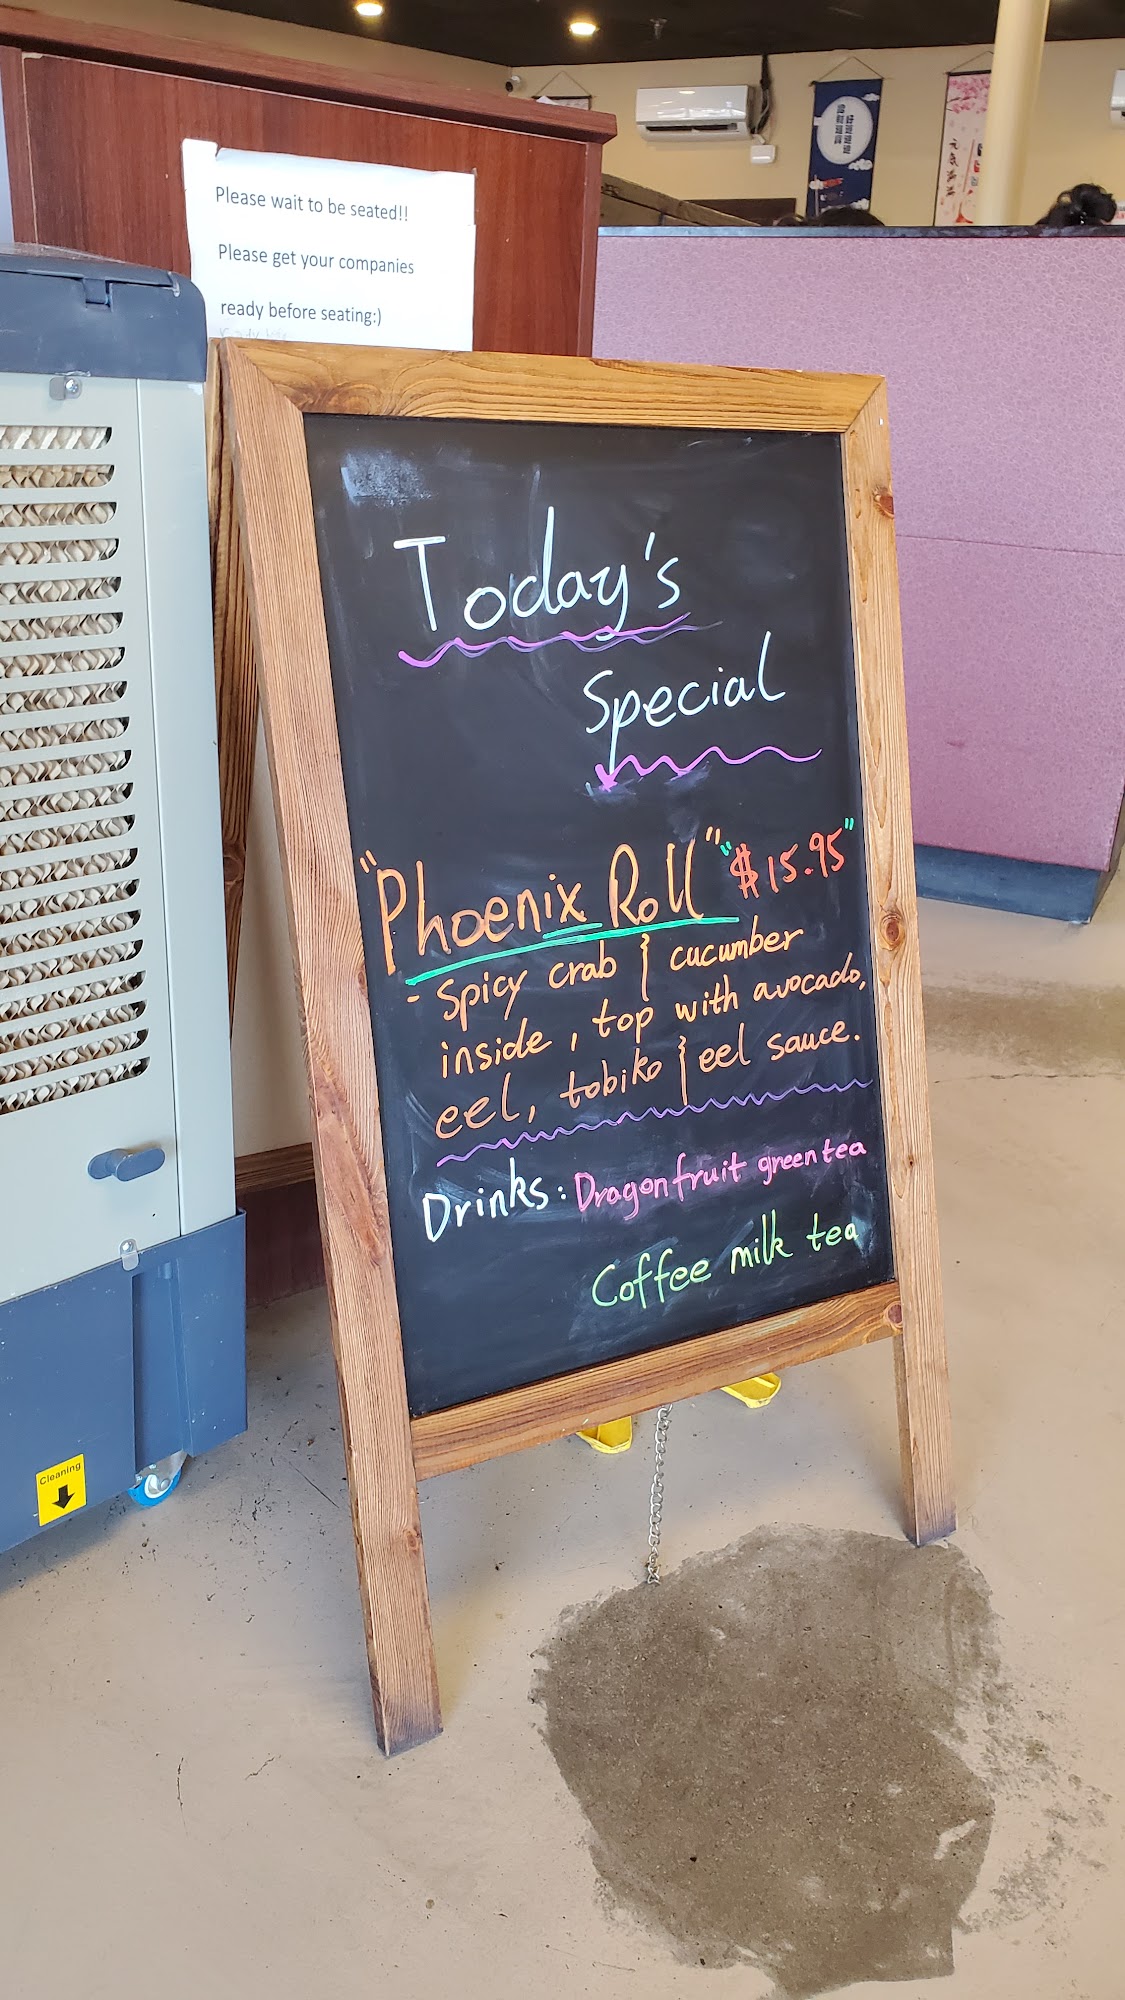 Please wait to be seated!!
Please get your companies
ready before seating:)
Today's
Special
"Phoenix Roll" "$15.95"
- Spicy crab & cucumber
inside, top with avocado,
eel, tobiko & eel sauce.
Drinks: Dragonfruit green tea
Coffee milk tea
Cleaning